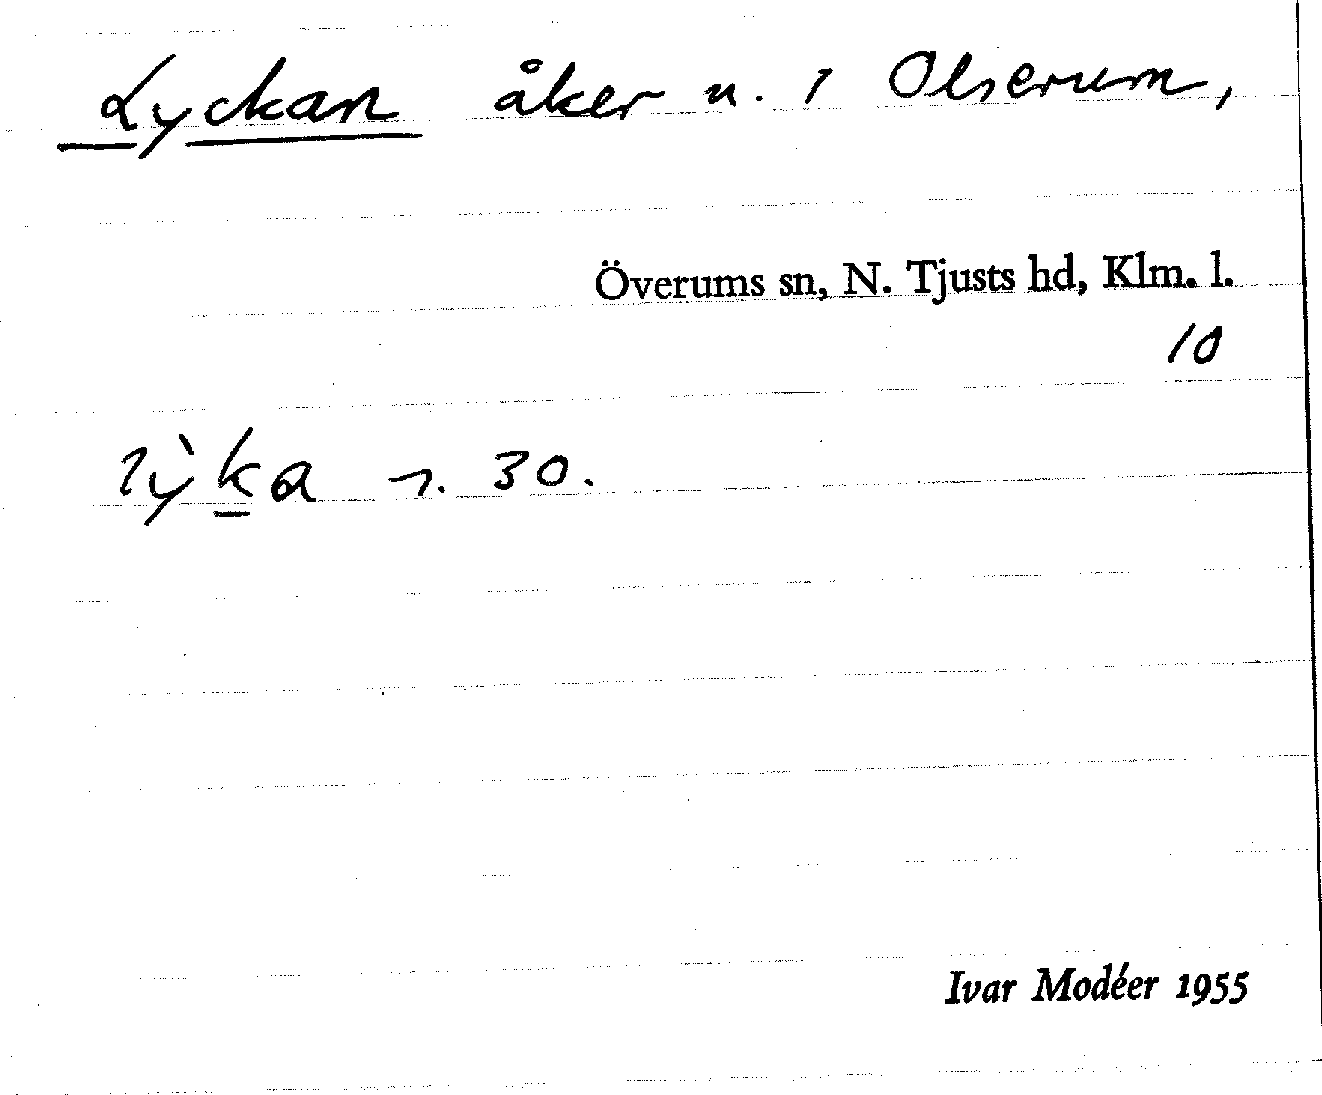 Lyckan åker u. 1 Olserum,
Överums sn, N. Tjusts hd, Klm. l.
10
lỳka n. 30.
Ivar Modéer 1955